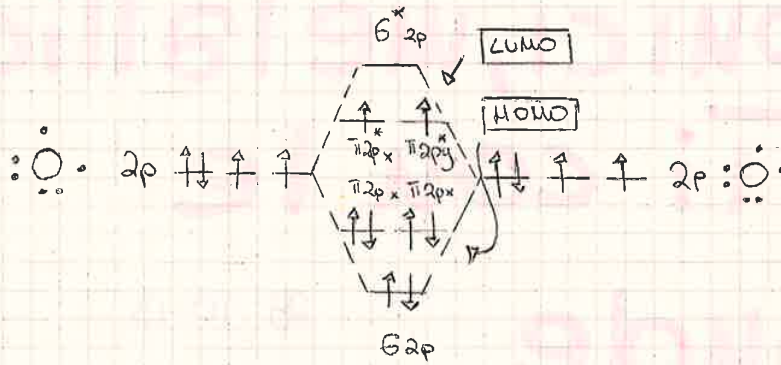 σ*2p
LUMO
HOMO
π2p*x π2p*y
O 2p ⇅ ↑ ↑ ⇅ ↑ ↑ 2p O
π2px π2px
σ2p